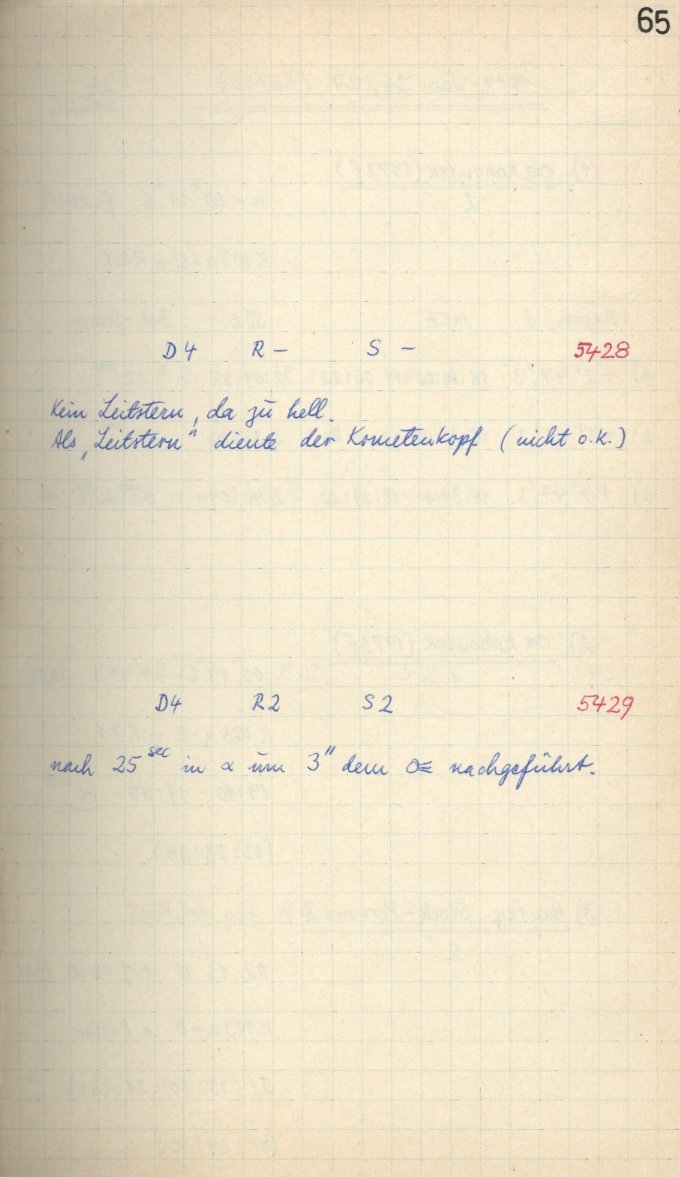 65
D4 R – S – 5428
Kein Leitstern, da zu hell.
Als „Leitstern" diente der Kometenkopf (nicht o.k.)
D4 R2 S2 5429
nach 25 sec in α um 3" dem ☄ nachgeführt.